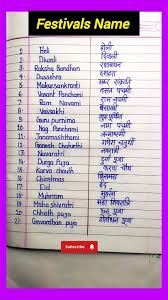 Festivals Name
1. Holi होली
2. Diwali दिवाली
3. Raksha Bandhan रक्षाबंधन
4. Dussehra दशहरा
5. Makarsankranti मकर संक्रांति
6. Vasant Panchami वसंत पंचमी
7. Ram Navami राम नवमी
8. Vaisakhi वैसाखी
9. Guru purnima गुरु पूर्णिमा
10. Nag Panchami नाग पंचमी
11. Janamashtami जन्माष्टमी
12. Ganesh Chaturthi गणेश चतुर्थी
13. Navaratri नवरात्री
14. Durga Puja दुर्गा पूजा
15. Karva chouth करवा चौथ
16. Christmas क्रिसमस
17. Eid ईद
18. Muhram मुहरम
19. Maha shivratri महा शिवरात्रि
20. Chhath puja छठ पूजा
21. Govardhan puja गोवर्धन पूजा
Subscribe